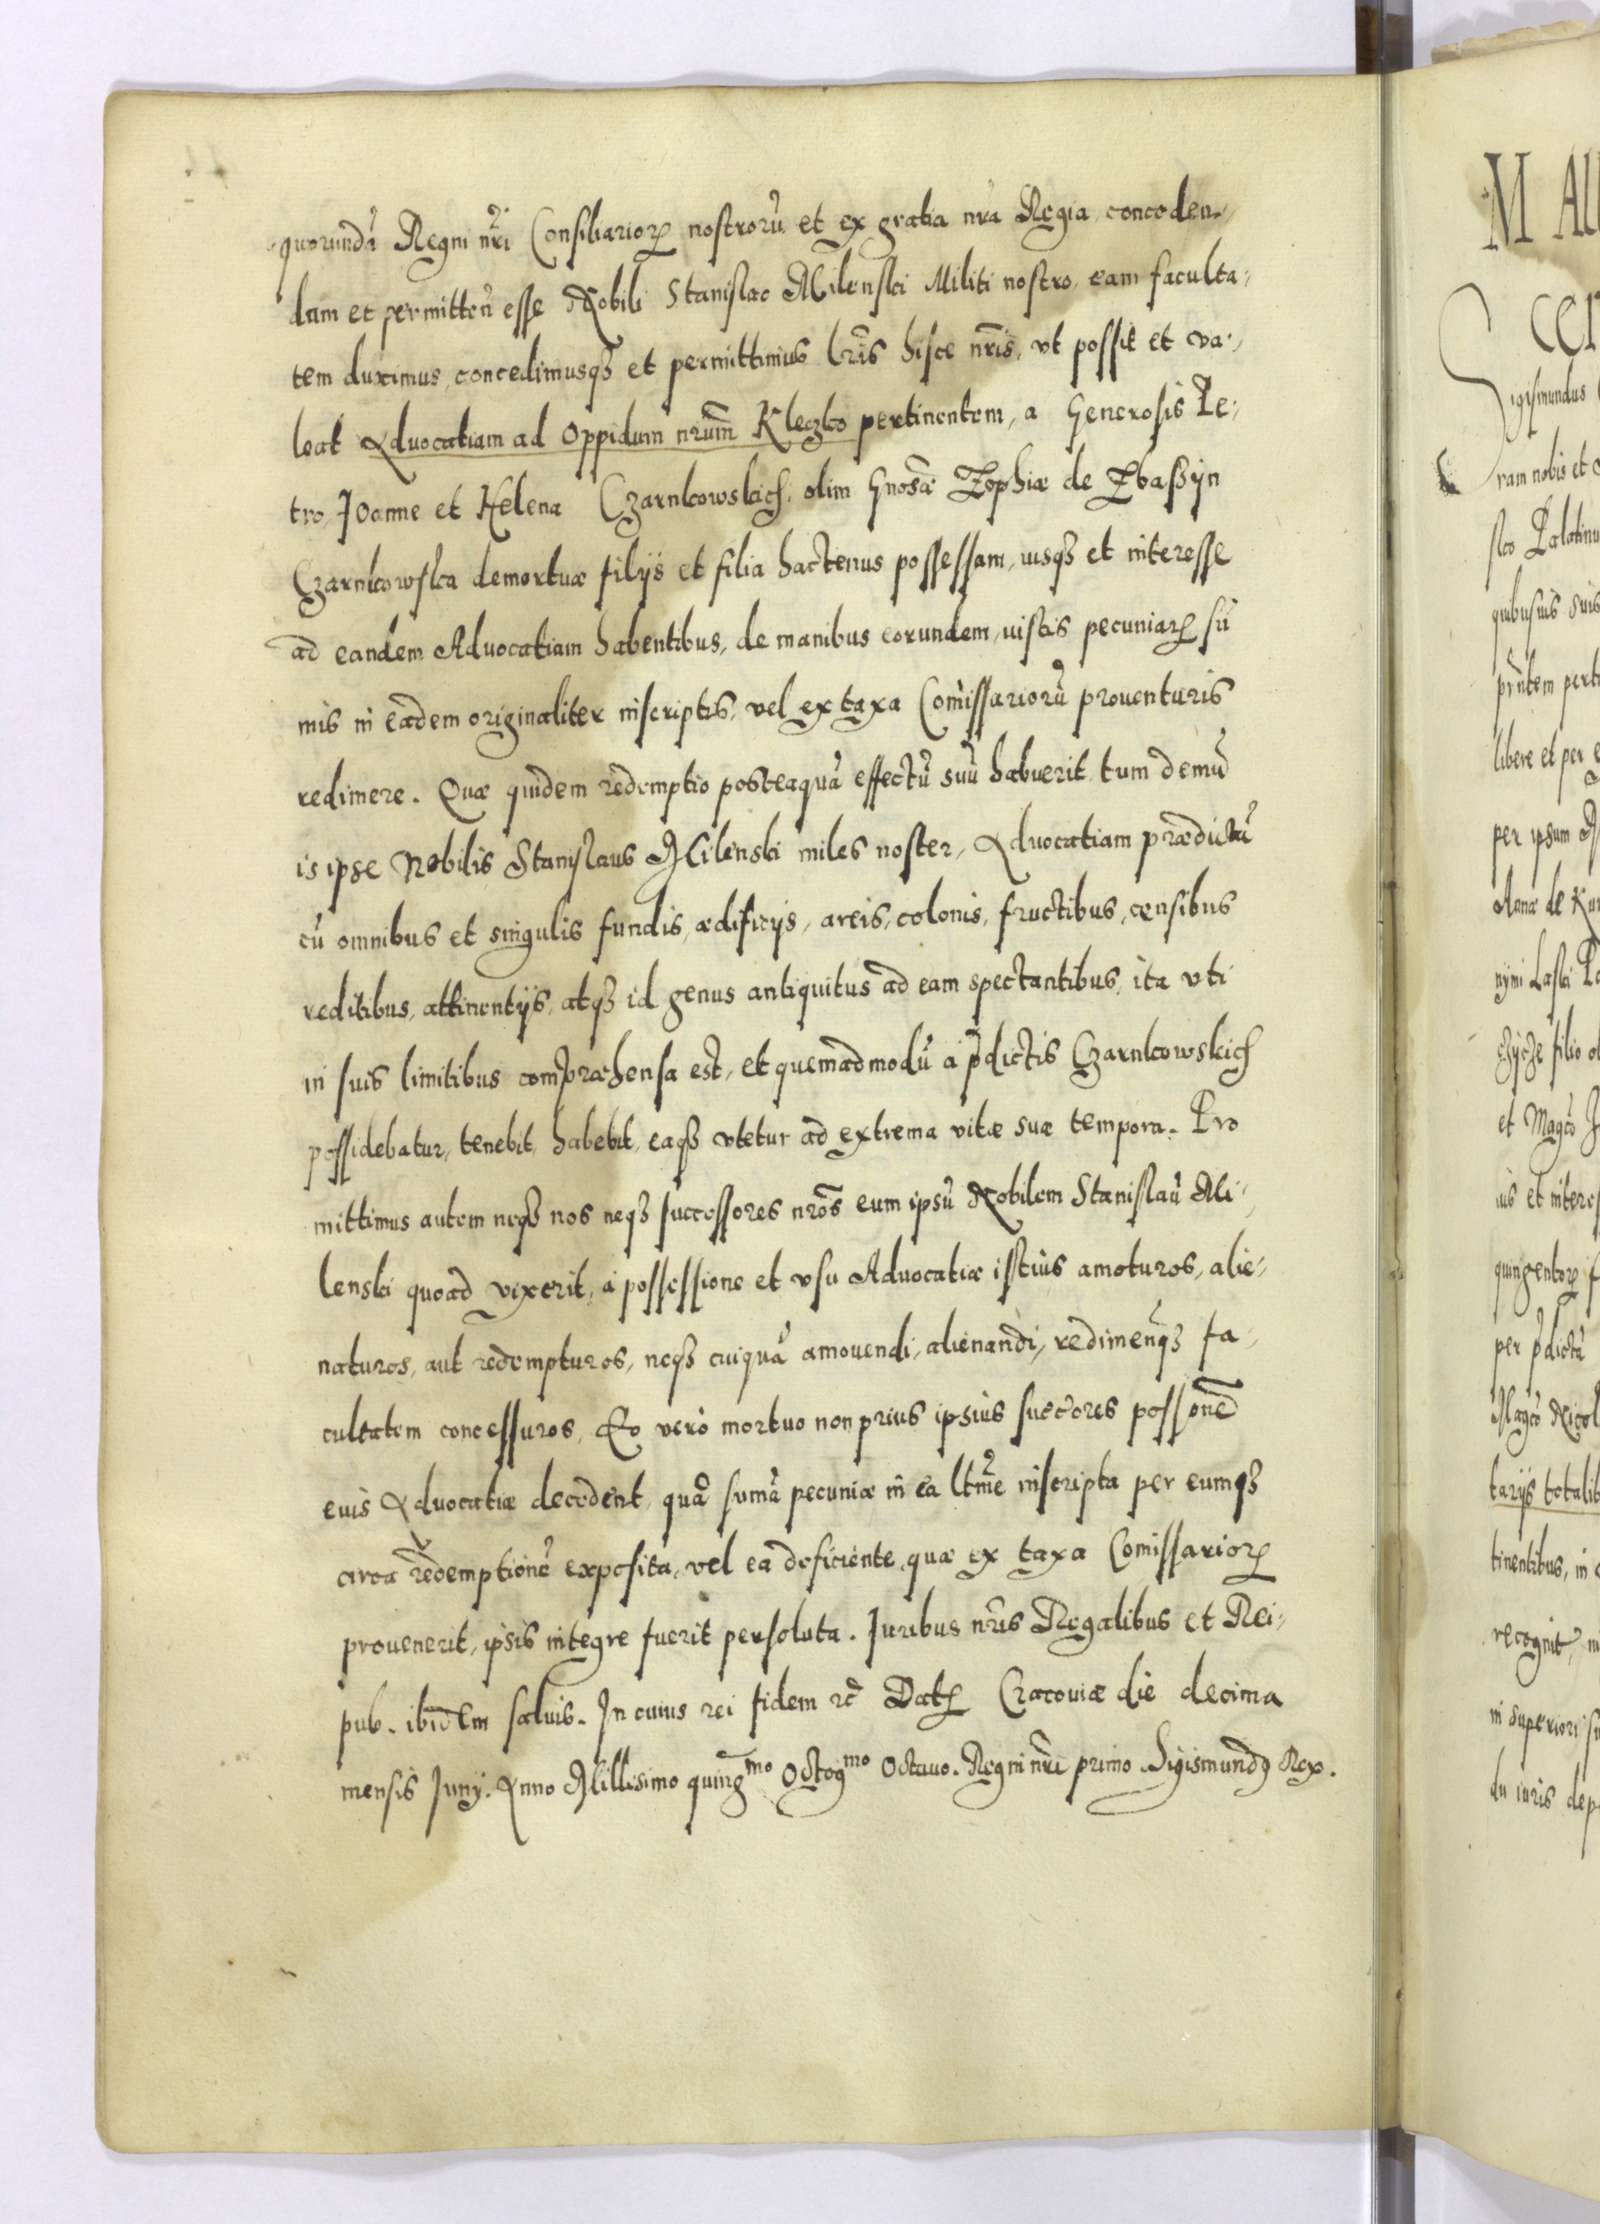 quorundã Regni nr̃i Consiliarioꝝ nostrorũ et ex gratia nr̃a Regia conceden-
dam et permitten̄ esse Nobili Stanislao Milenski Militi nostro, eam faculta-
tem duximus, concedimusqꝫ et permittimus lr̃is hisce nr̃is, vt possit et va-
leat Aduocatiam ad Oppidum nrum̃ Kleczko pertinentem, a Generosis Pe-
tro, Joanne et Helena Czarnkowskich, olim Gnosæ Zophiæ de Zbaßijn
Czarnkowska demortuæ filijs et filia hactenus possessam, iusqꝫ et interesse
ad eandem Aduocatiam habentibus, de manibus eorundem, iustis pecuniaꝝ sũ
mis in eadem originaliter inscriptis, vel ex taxa Com̃issariorũ prouenturis
redimere. Quæ quidem redemptio posteaquã effectũ suũ habuerit, tum demũ
is ipse Nobilis Stanislaus Milenski miles noster, Aduocatiam prædictã
cũ omnibus et singulis fundis, ædificijs, areis, colonis, fructibus, censibus
reditibus, attinentijs, atqꝫ id genus antiquitus ad eam spectantibus, ita vti
in suis limitibus compræhensa est, et quemadmodũ à p̃dictis Czarnkowskich
possidebatur, tenebit, habebit, eaqꝫ vtetur ad extrema vitæ suæ tempora. Pro
mittimus autem neqꝫ nos neqꝫ successores nrõs eum ipsũ Nobilem Stanislaũ Mi-
lenski quoad vixerit, à possessione et vsu Aduocatiæ istius amoturos, alie-
naturos, aut redempturos, neqꝫ cuiquã amouendi, alienandi, redimen̄qꝫ fa-
cultatem concessuros, Eo verò mortuo non prius ipsius succ̃ores possonẽ
euis Aduocatiæ decedent, quã sumã pecuniæ in ea ltm̃e inscripta per eumqꝫ
circa redemptionẽ exposita, vel ea deficiente, quæ ex taxa Comissarioꝝ
prouenerit, ipsis integre fuerit persoluta. Juribus nr̃is Regalibus et Rei-
pub. ibidem saluis. In cuius rei fidem ꝛc̃ Datꝭ Cracouiæ die decima
mensis Junij. Anno Millesimo quing̃mo Octogmo Octauo. Regni nr̃i primo Sigismundꝰ Rex.
M All
Cer
Sigismundus
ram nobis et
sko Palatinu
quibusuis suis
pr̃ntem pert
libere et per e
per ipsum
Annæ de Kur
nymi Laski Pa
filio ol
et Magcõ
ius et interes
quingentoꝝ f
per p̃dictũ
Magcõ Nicol
tarijs totalit
tinentibus, in
recognit,
in superiori
du iuris dep